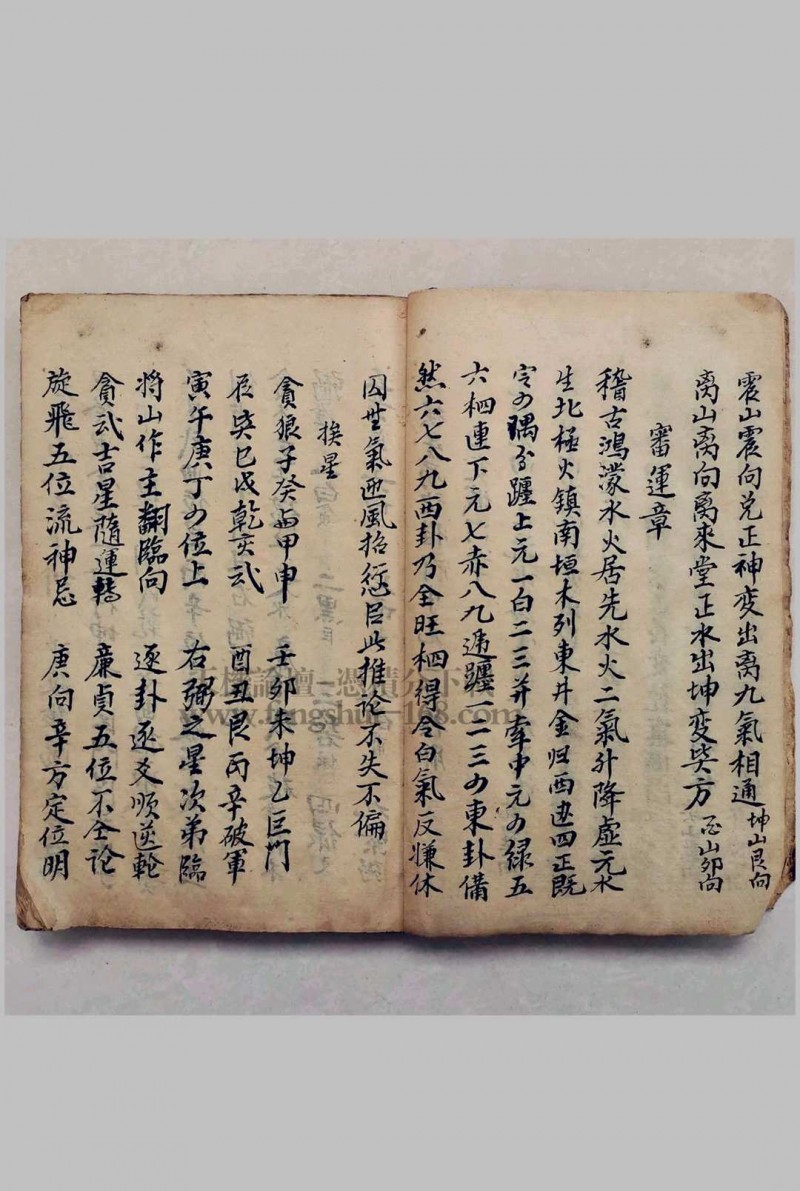 震山震向兑正神变出离九氣相通坤山艮向
离山离向离來堂正水出坤变巽方酉山卯向
審運章
稽古鴻濛水火居先水火二氣升降虛元水
生北極火鎮南垣木列東升金归西边四正既
定四隅分躔上元一白二三并牽中元四綠五
六相連下元七赤八九遞躔一二三四東卦備
然六七八九西卦乃全旺相得令白氣反嫌休
囚世氣迎風招愆臣此推论不失不偏
挨星
貪狼子癸与甲申 壬卯未坤乙巨門
辰巽巳戌乾亥武 酉丑艮丙辛破軍
寅午庚丁四位上 右弼之星次第臨
将山作主翻臨向 逐卦逐爻順逆輪
貪武吉星隨運轉 廉貞五位不全论
旋飛五位流神忌 庚向辛方定位明
www.fengshui-168.com